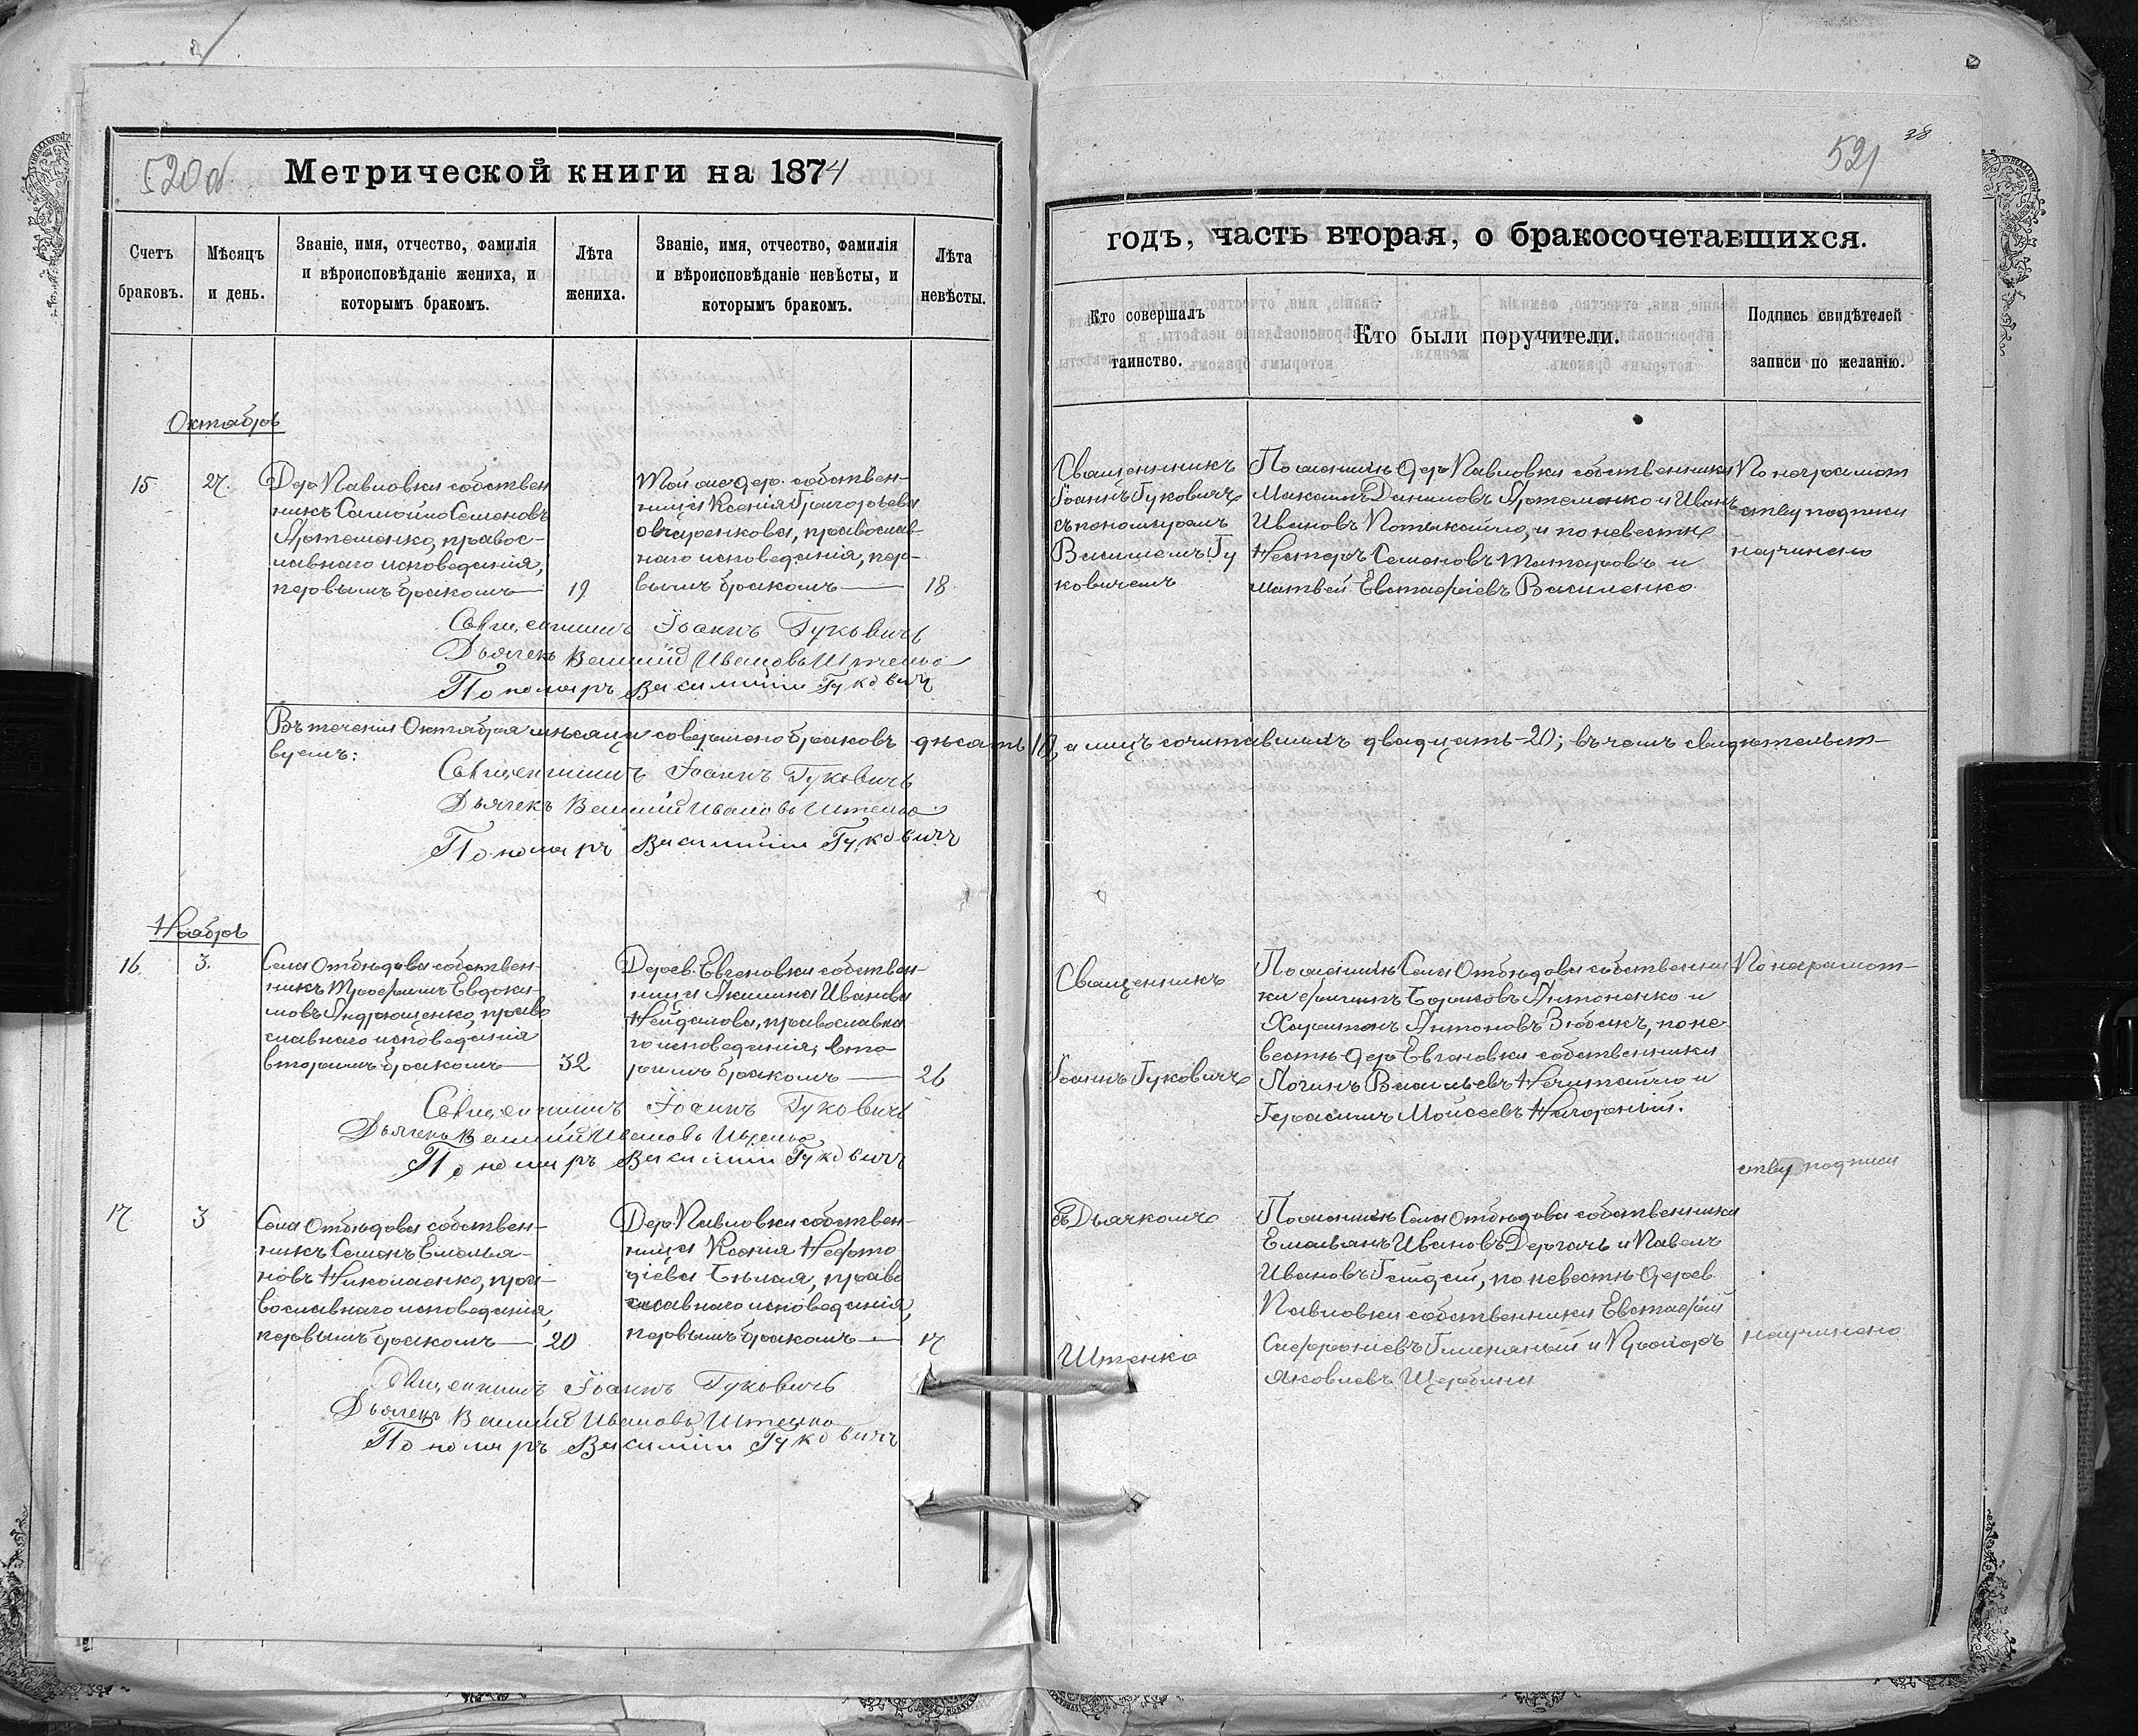 520об
Метрической книги на 1874
Счетъ браковъ.
Мѣсяцъ и день.
Званіе, имя, отчество, фамилія
и вѣроисповѣданіе жениха, и
которымъ бракомъ.
Лѣта жениха.
Званіе, имя, отчество, фамилія
и вѣроисповѣданіе невѣсты, и
которымъ бракомъ.
Лѣта невѣсты.
Октябрь
15
27
Дер Павловки собствен
никъ Самойло Семеновъ
Артеменко, правос-
лавнаго исповеданія,
первымъ бракомъ
19
Той же дер. собствен-
ница Ксенія Григорьева
Овчаренкова, православ-
наго исповеданія, пер-
вымъ бракомъ
18
Священникъ Іоаннъ Гуковичъ
Дьячекъ Василій Ивановъ Штенко
Пономарь Василий Гуковичъ
Въ течении Октября месяца совершено браковъ десять 10, а лицъ сочитавшихъ двадцать-20; въ чемъ свидетельст-
вуемъ:
Священникъ Іоаннъ Гуковичъ
Дьячекъ Василій Ивановъ Штенко
Пономарь Василий Гуковичъ
Ноябрь
16
3.
Села Отбѣдова собствен-
никъ Трофимъ Евдоки-
мовъ Андрющенко, право
славнаго исповедания
вторымъ бракомъ
32
Дерев. Евгеновки собствен-
ница Акилина Иванова
Нейдалова, православна
го исповедания, вто
рымъ бракомъ
26
Священникъ Іоаннъ Гуковичъ
Дьячекъ Василій Ивановъ Штенко
Пономарь Василий Гуковичъ
17
3
Села Отбѣдова собствен-
никъ Семенъ Емелья-
новъ Николаенко, пра-
вославнаго исповеданія,
первымъ бракомъ
20
Дер. Павловки собствен-
ница Ксенія Мефо­диева Бѣлая, право
славнаго исповеданія,
первымъ бракомъ
17
Священникъ Іоаннъ Гуковичъ
Дьячекъ Василій Ивановъ Штенко
Пономарь Василий Гуковичъ
38
521
годъ, часть вторая, о бракосочетавшихся.
Кто совершалъ
таинство.
Кто были поручители.
Подпись свидѣтелей
записи по желанію.
Священникъ
Іоаннъ Гуковичъ
съ пономаремъ
Василиемъ Гу
ковичемъ
По женихѣ дер Павловки собственники
Максимъ Даниловъ Артеменко и Иванъ
Ивановъ Потыкайло, и по невестѣ
Несторъ Семеновъ Татаровъ и
Матвей Евстафіевъ Василенко
По неграмот
ству подписи
неучинено
Священникъ
Іоаннъ Гуковичъ
По женихѣ Села Отбѣдова собственни
ки Антоненко и
Харитонъ Антоновъ Зюбакъ, по не
вестѣ дер Евгеновки собственники
Логинъ Васильевъ Нечитайло и
Герасимъ Мойсеевъ Нагорный.
По неграмот-
ству подписи
съ Дьячкомъ
Штенко
По женихѣ Села Отбѣдова собственники
Емельянъ Ивановъ Дергачъ и Павелъ
Ивановъ Гайдай, по невестѣ дерев.
Павловки собственники Евстафій
Сафроніевъ и
Яковлевъ Щербина
неучинено